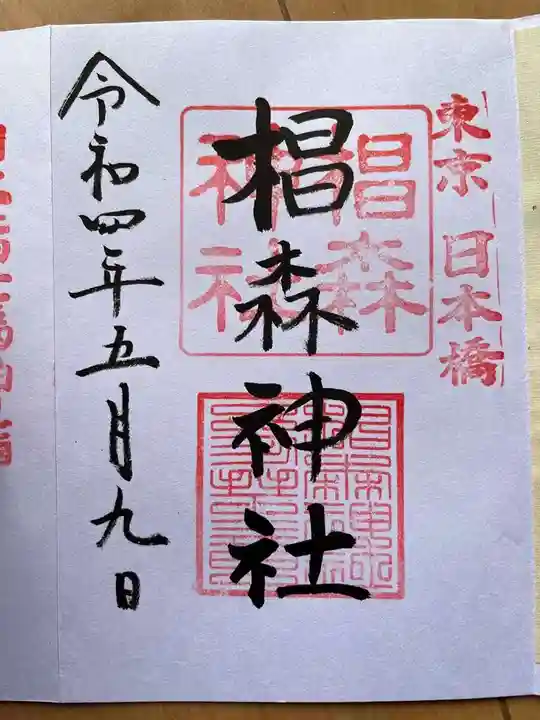 東京 日本橋
椙森神社
椙森
神社
令和四年五月九日